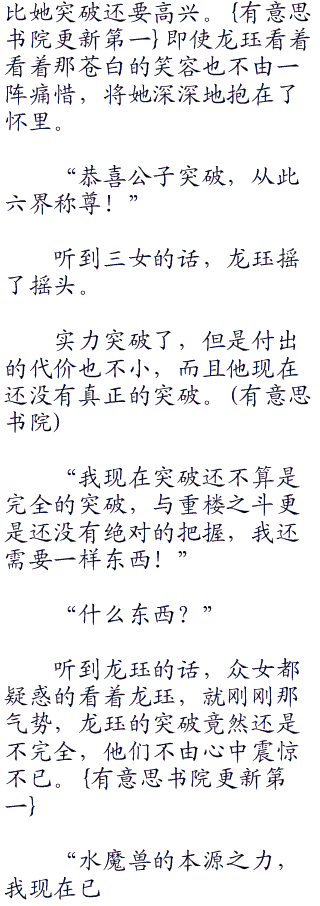 比她突破还要高兴。{有意思
书院更新第一}即使龙珏看着
看着那苍白的笑容也不由一
阵痛惜，将她深深地抱在了
怀里。
“恭喜公子突破，从此
六界称尊！”
听到三女的话，龙珏摇
了摇头。
实力突破了，但是付出
的代价也不小，而且他现在
还没有真正的突破。(有意思
书院)
“我现在突破还不算是
完全的突破，与重楼之斗更
是还没有绝对的把握，我还
需要一样东西！”
“什么东西？”
听到龙珏的话，众女都
疑惑的看着龙珏，就刚刚那
气势，龙珏的突破竟然还是
不完全，他们不由心中震惊
不已。{有意思书院更新第
一}
“水魔兽的本源之力，
我现在已